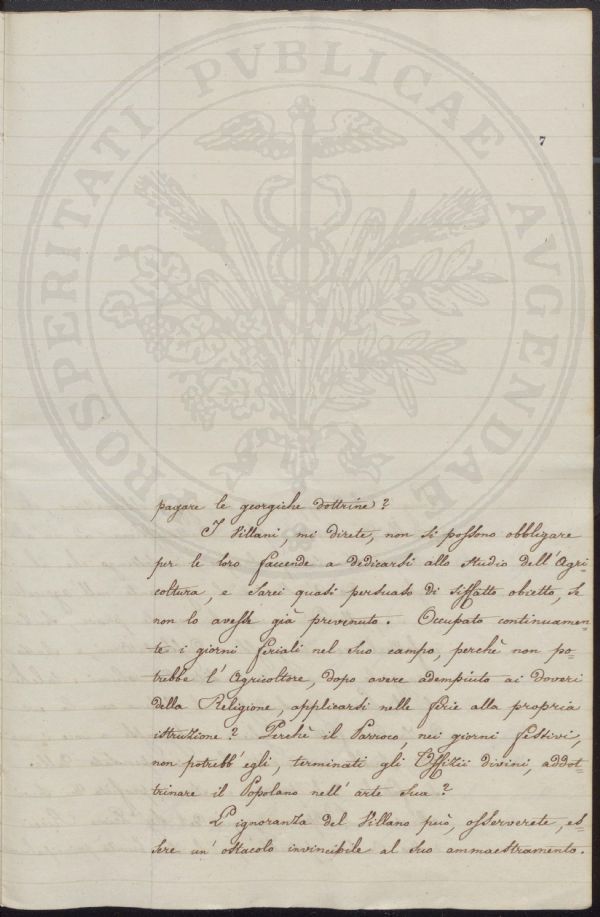 PROSPERITATI PVBLICAE AVGENDAE
7
pagare le georgiche dottrine?
I Villani, mi direte, non si possono obbligare
per le loro faccende a dedicarsi allo studio dell'Agri=
coltura, e sarei quasi persuaso di siffatto obietto, se
non lo avesse già prevenuto. Occupato continuamen=
te i giorni feriali nel suo campo, perchè non po=
trebbe l'Agricoltore, dopo avere adempiuto ai doveri
della Religione, applicarsi nelle ferie alla propria
istruzione? Perchè il Parroco, nei giorni festivi,
non potrebb'egli, terminati gli Uffizii divini, addot=
trinare il Popolano nell'arte sua?
L'ignoranza del Villano può, osserverete, es=
sere un'ostacolo invincibile al suo ammaestramento.